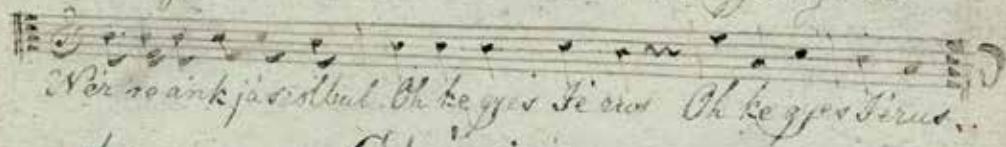 Nèz reánk jászolbul Oh kegyes Jésus Oh kegyes Jésus..